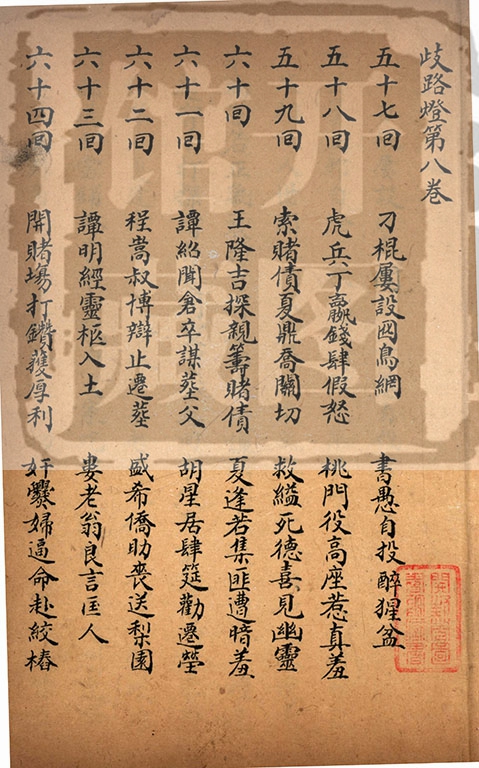 歧路燈第八卷
五十七回 刁棍屢設囮鳥網 書愚自投醉猩盆
五十八回 虎兵丁贏錢肆假怒 桃門役高座惹真羞
五十九回 索賭債夏鼎喬關切 救縊死德喜見幽靈
六十回 王隆吉探親籌賭債 夏逢若集匪遭暗羞
六十一回 譚紹聞倉卒謀葬父 胡星居肆筵勸遷塋
六十二回 程嵩叔博辯止遷葬 盛希僑助喪送梨園
六十三回 譚明經靈柩入土 婁老翁良言匡人
六十四回 開賭場打鑽獲厚利 奸爨婦逼命赴絞樁